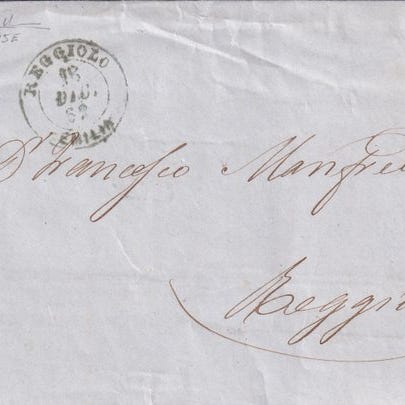 REGGIOLO
18
DIC.
EMILIA
Dr Francesco Manfre
Reggi